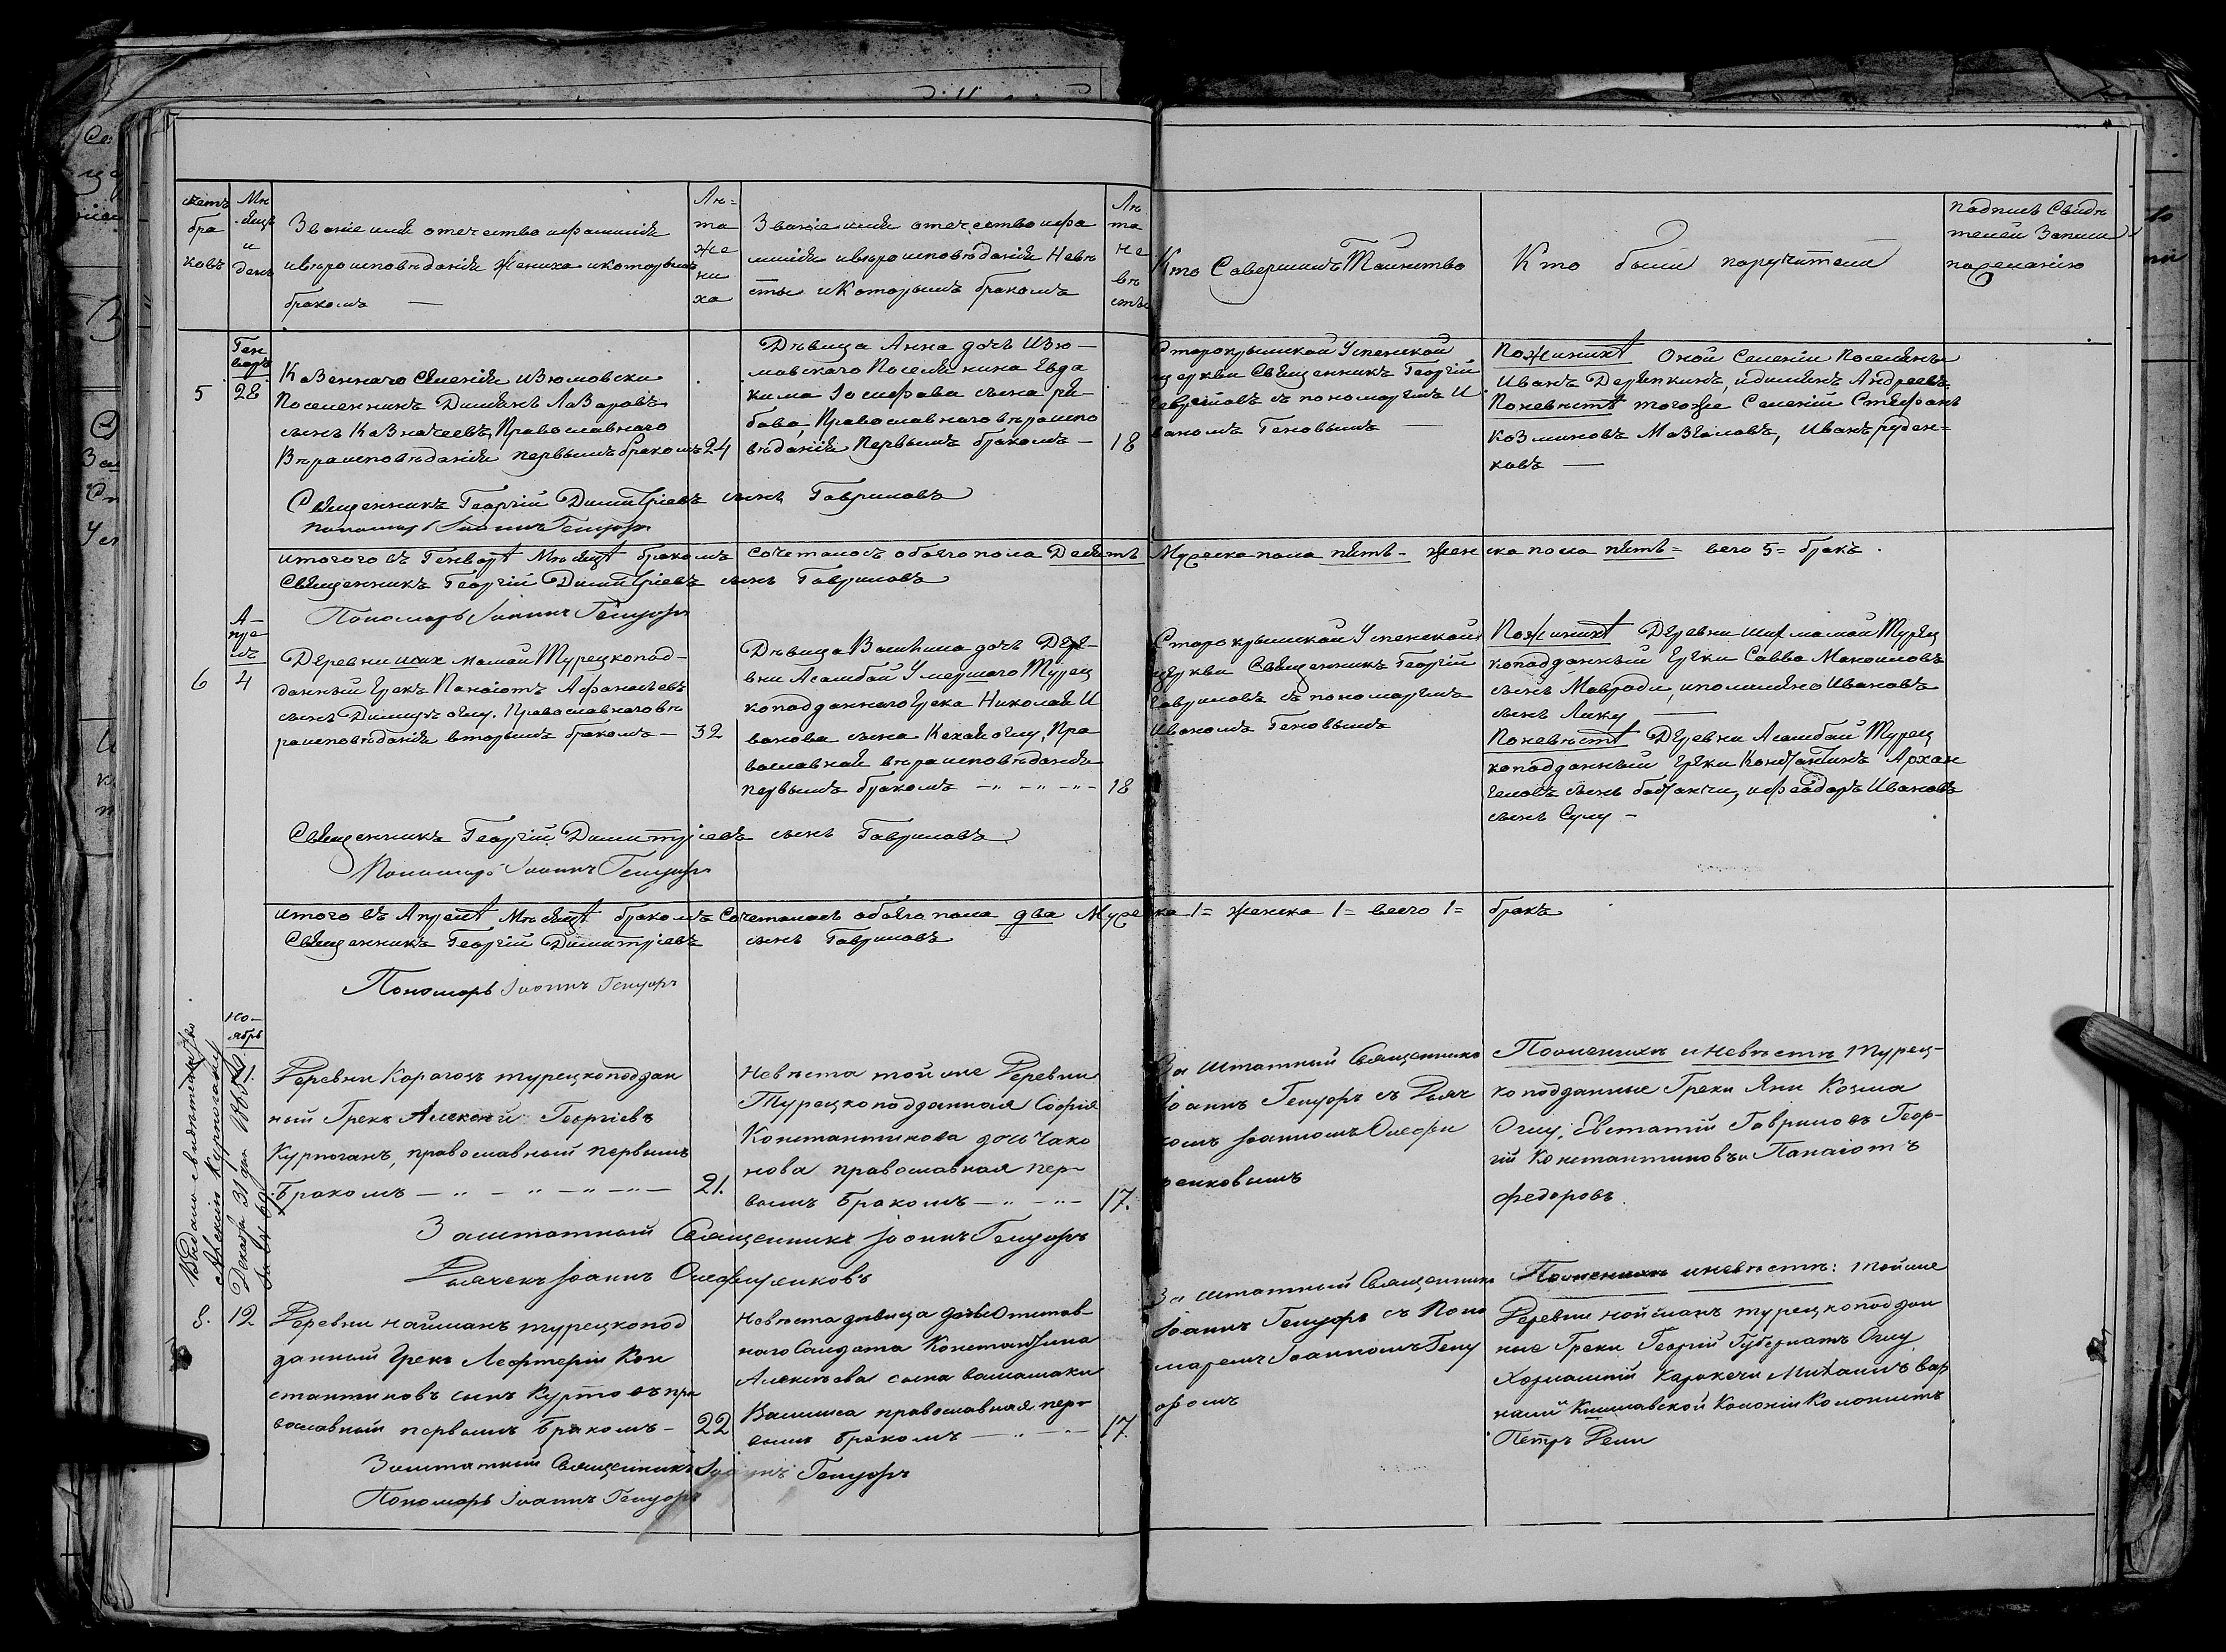 счетъ
бра
ковъ
Мѣ
сяцъ
и
день
Званіе имя отечество и фамилія
и вѣроисповѣданія Жениха и которымъ
бракомъ —
Лѣ=
та
же
ни
ха
Званіе имя отечество и фа
милія и вѣроисповѣданія Невѣ
сты и Которымъ бракомъ
Лѣ
та
не
вѣ
сты
Кто Совершилъ Таинство
Кто были поручители
подпись Свидѣ
телей Записи
по желанію
5
Ген
варъ
28
Казеннаго Селенія Изюмовски
Поселенникъ Дамянъ Лазаровъ
сынъ Казначеевъ, Православнаго
Вѣраисповѣданія первымъ бракомъ
24
Дѣвица Анна дочь Изю—
мовскаго Поселянина Евда
кима Іосифава сына ри
бова, Православнаго вѣраиспо
вѣданія Первымъ бракомъ —
18
Старокрымской Успенской
церкви Священникъ Георгій
Гавриловъ съ пономаремъ И
ваномъ Геновымъ —
По женихѣ Оной Селеніи Поселянъ
Иванъ Андреевъ
По невѣстѣ того же Селенія Стефанъ
Козминовъ Иванъ руден=
ковъ —
Священникъ Георгій Димитріевъ сынъ Гавриловъ
пономарь Іоаннъ Генуоръ
итогого въ Генварѣ Мѣсяцѣ бракомъ Сочеталось обоего пола Десять Мужеска пола пять — Женска пола пять = всего 5 = бракъ .
Священникъ Георгій Димитріевъ сынъ Гавриловъ
Пономарь Іоаннъ Генуоръ
А—
пре
ль
6
4
Деревни шах мамай Турецкопод-
данный Грекъ Панаіотъ Афанасьевъ
сынъ Димиръ оглу. Православнаго вѣ
раисповѣданія вторымъ бракомъ —
32
Дѣвица Василиса дочь Дере-
вни Асамбай Умершаго Турец
коподданнаго Грека Николая И
ванова сына Кехай оглу, Пра
вославнай вѣраисповѣданія
первымъ бракомъ — „ — „ —
18
Старокрымской Успенской
церкви Священникъ Георгій
Гавриловъ съ пономаремъ
Иваномъ Геновымъ
По женихѣ Деревни шах мамай Турец
коподданный Греки Савва Маноиловъ
сынъ Мавроди, Ивановъ
сынъ Лику —
По невѣстѣ Деревни Асамбай Турец
коподданный Греки КонстантинъАрхан
геловъ сынъ бастанчи, и феодоръ Ивановъ
сынъ Сулу —
Священникъ Георгій Димитріевъ сынъ Гавриловъ
Пономарь Іоаннъ Генуоръ
итого въ Апрелѣ Мѣсяцѣ бракомъ Сочеталось обоего пола два Мужеска 1 = женска 1 = всего 1 = бракъ
Священникъ Георгій Димитріевъ сынъ Гавриловъ
Пономарь Іоаннъ Генуоръ
Выдано свидѣтельство
Алексѣю Курпогану
Декабря 31 дня
за № 69.
но—
ябрь
Деревни Карагозъ турецкоподдан
ный Грекъ Алексѣй Георгіевъ
Курпоганъ, православный первымъ
Бракомъ — „ — „ — „ — „ —
21.
Невѣста той же Деревни
Турецкоподданная Софія
Константинова дочь Чако
нова православная пер-
вымъ Бракомъ — „ — „ —
17.
За штатный Священникъ
Іоаннъ Генуоръ съ Дьяч
комъ Іоанномъ
По женихѣ и невѣстѣ Турец-
ко подданные Греки Яни Козма
Оглу, Евстатій Гавриловъ Геор-
гій Константиновъ и Панаіотъ
федоровъ.
Заштатный Священникъ Іоаннъ Генуоръ
Дьячекъ Іоаннъ
8.
12
Деревни Найманъ турецкопод
данный Грекъ Лефтерій Кон
стантиновъ сынъ Куртовъ пра
вославный первымъ Бракомъ —
22
Невѣста дѣвица дочь Отстав-
наго Солдата Константина
Алексѣева сына
Василиса православная пер-
вымъ Бракомъ — „ — „ —
17.
За штатный Священникъ
Іоаннъ Генуоръ съ Поно
маремъ Іоанномъ Гену
оромъ
По женихѣ и невѣстѣ: той же
Деревни Найманъ турецкоподдан
ные Греки Георгій Оглу
Каракечи Михаилъ
Колоніи Колонистъ
Петръ
Заштатный Священникъ Іоаннъ Генуоръ
Пономарь Іоаннъ Генуоръ